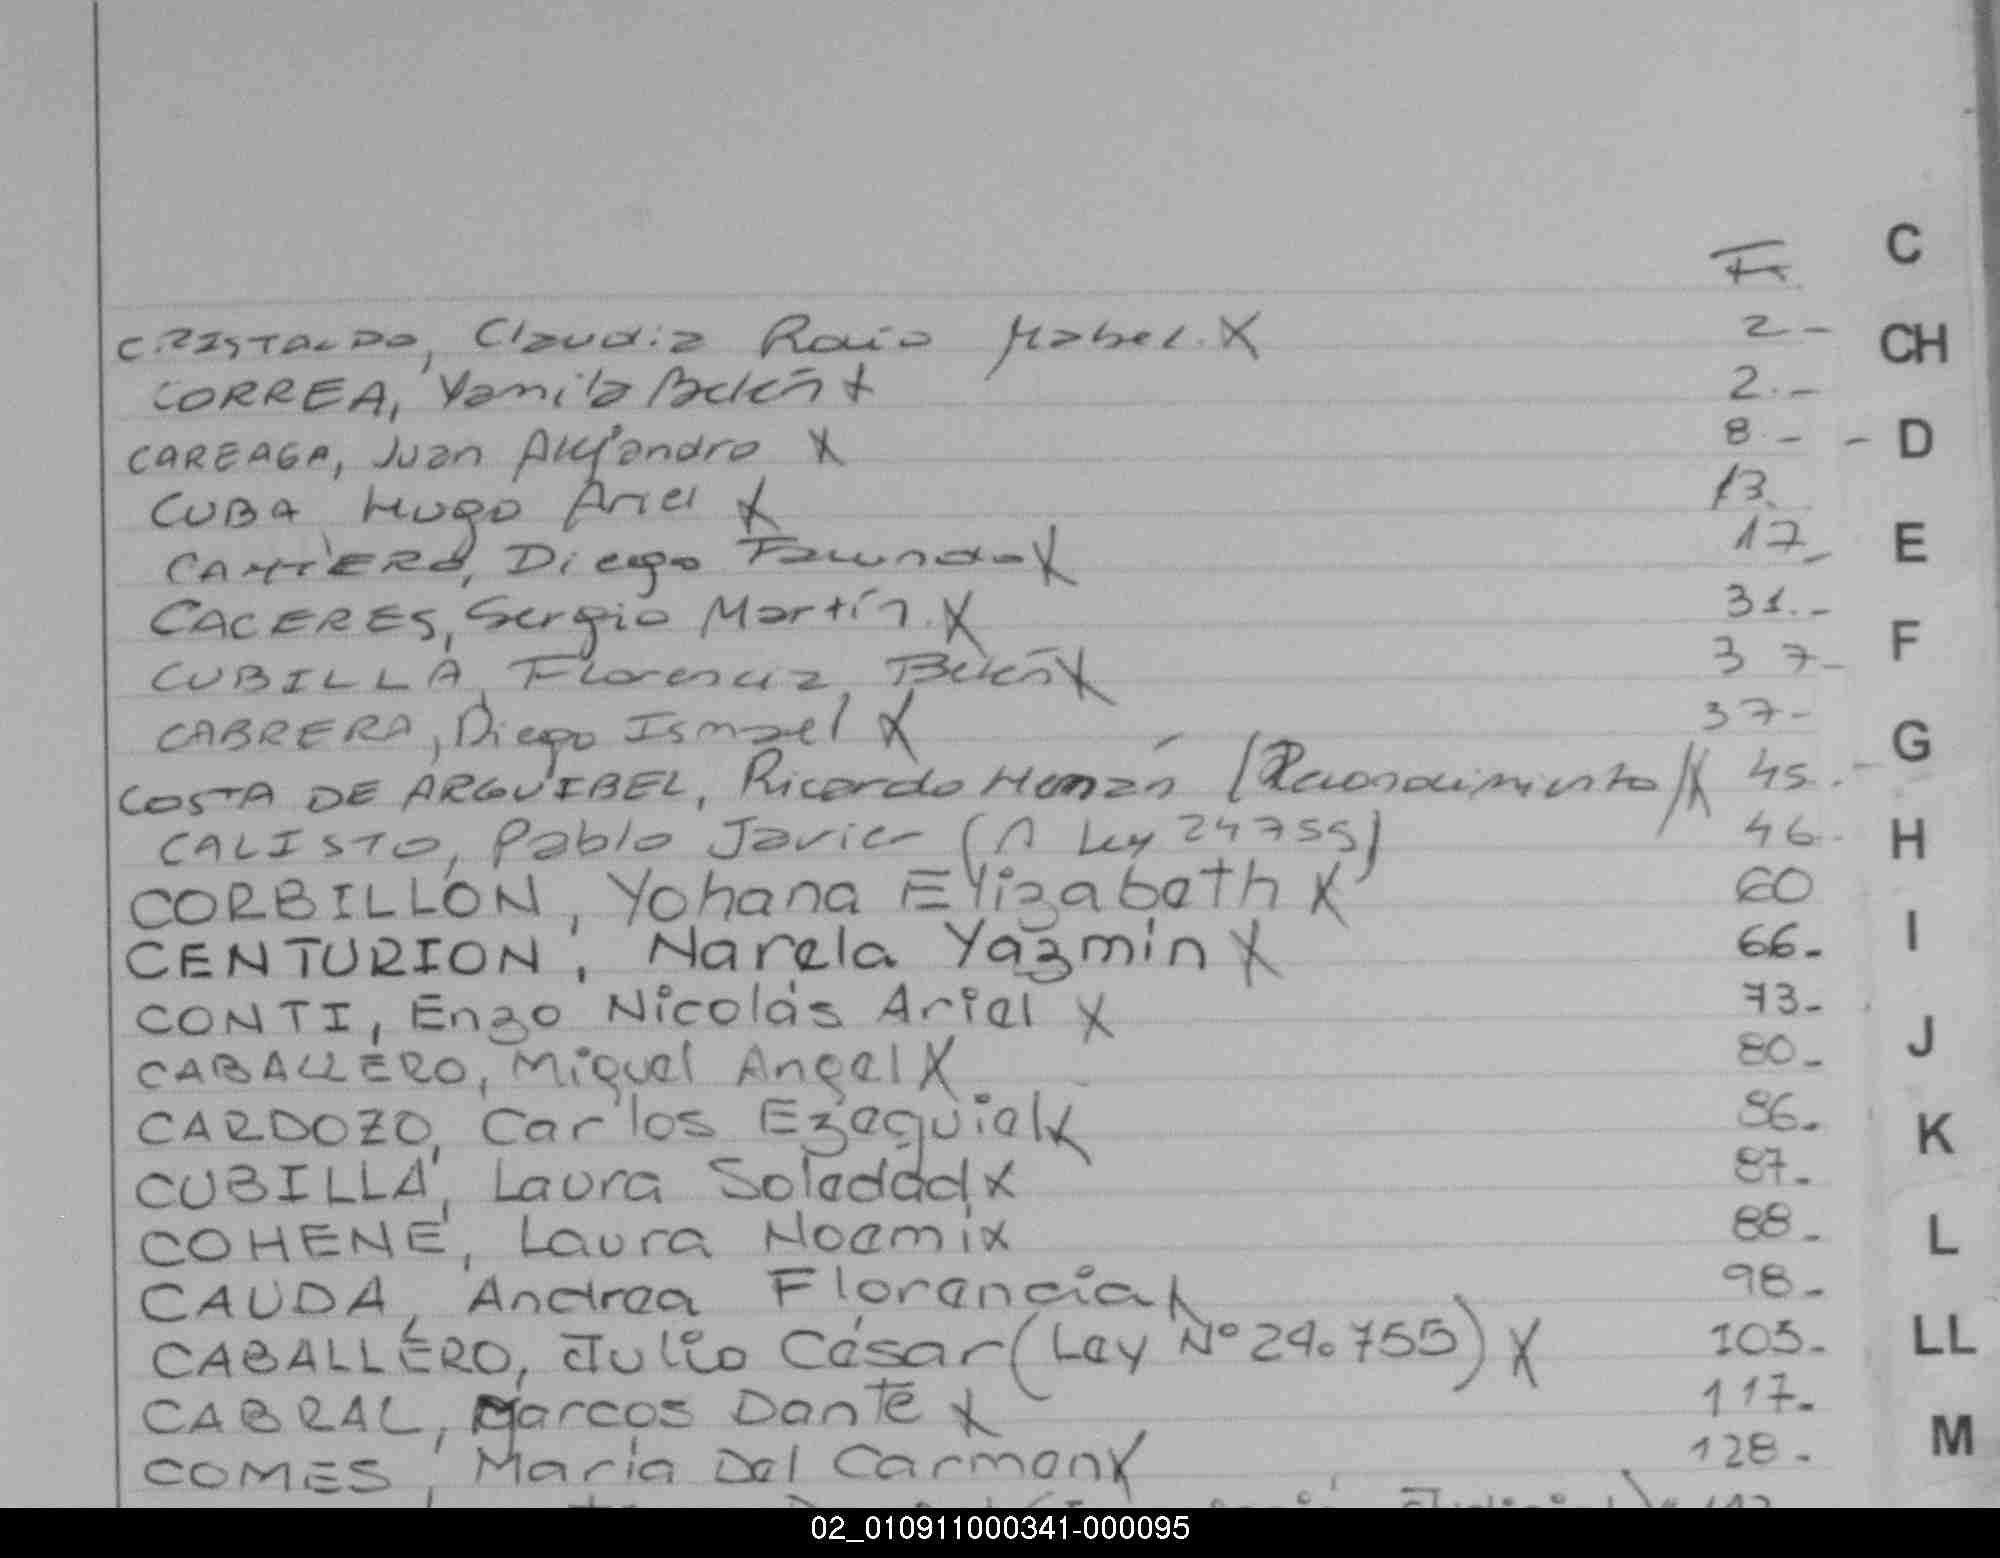 F.
C
CRISTALDO, Claudia Rocio Mabel. X 2 -
CH
CORREA, Yamila Belén X 2.-
CAREAGA, Juan Alejandro X 8.- - D
CUBA, Hugo Ariel X 13.
CANTERO, Diego Facundo X 17_ E
CACERES, Sergio Martín. X 31.-
CUBILLA, Florencia, Belén X 37- F
CABRERA, Diego Ismael X 37-
G
COSTA DE ARGUIBEL, Ricardo Hernán (Reconocimiento) X 45.-
CALISTO, Pablo Javier ( Ley 24755) 46- H
CORBILLON, Yohana Elizabeth X 60
CENTURION, Narela Yazmin X 66- I
CONTI, Enzo Nicolás Ariel X 73-
CABALLERO, Miguel Angel X 80- J
CARDOZO, Carlos Ezequiel X 86. K
CUBILLA, Laura Soledad X 87.
COHENE, Laura Noemi X 88- L
CAUDA, Andrea Florencia X 98-
CABALLERO, Julio César (Ley Nº 24.755) X 103- LL
CABRAL, Marcos Dante X 117-
COMES, María Del Carmen X 128. M
02_010911000341-000095